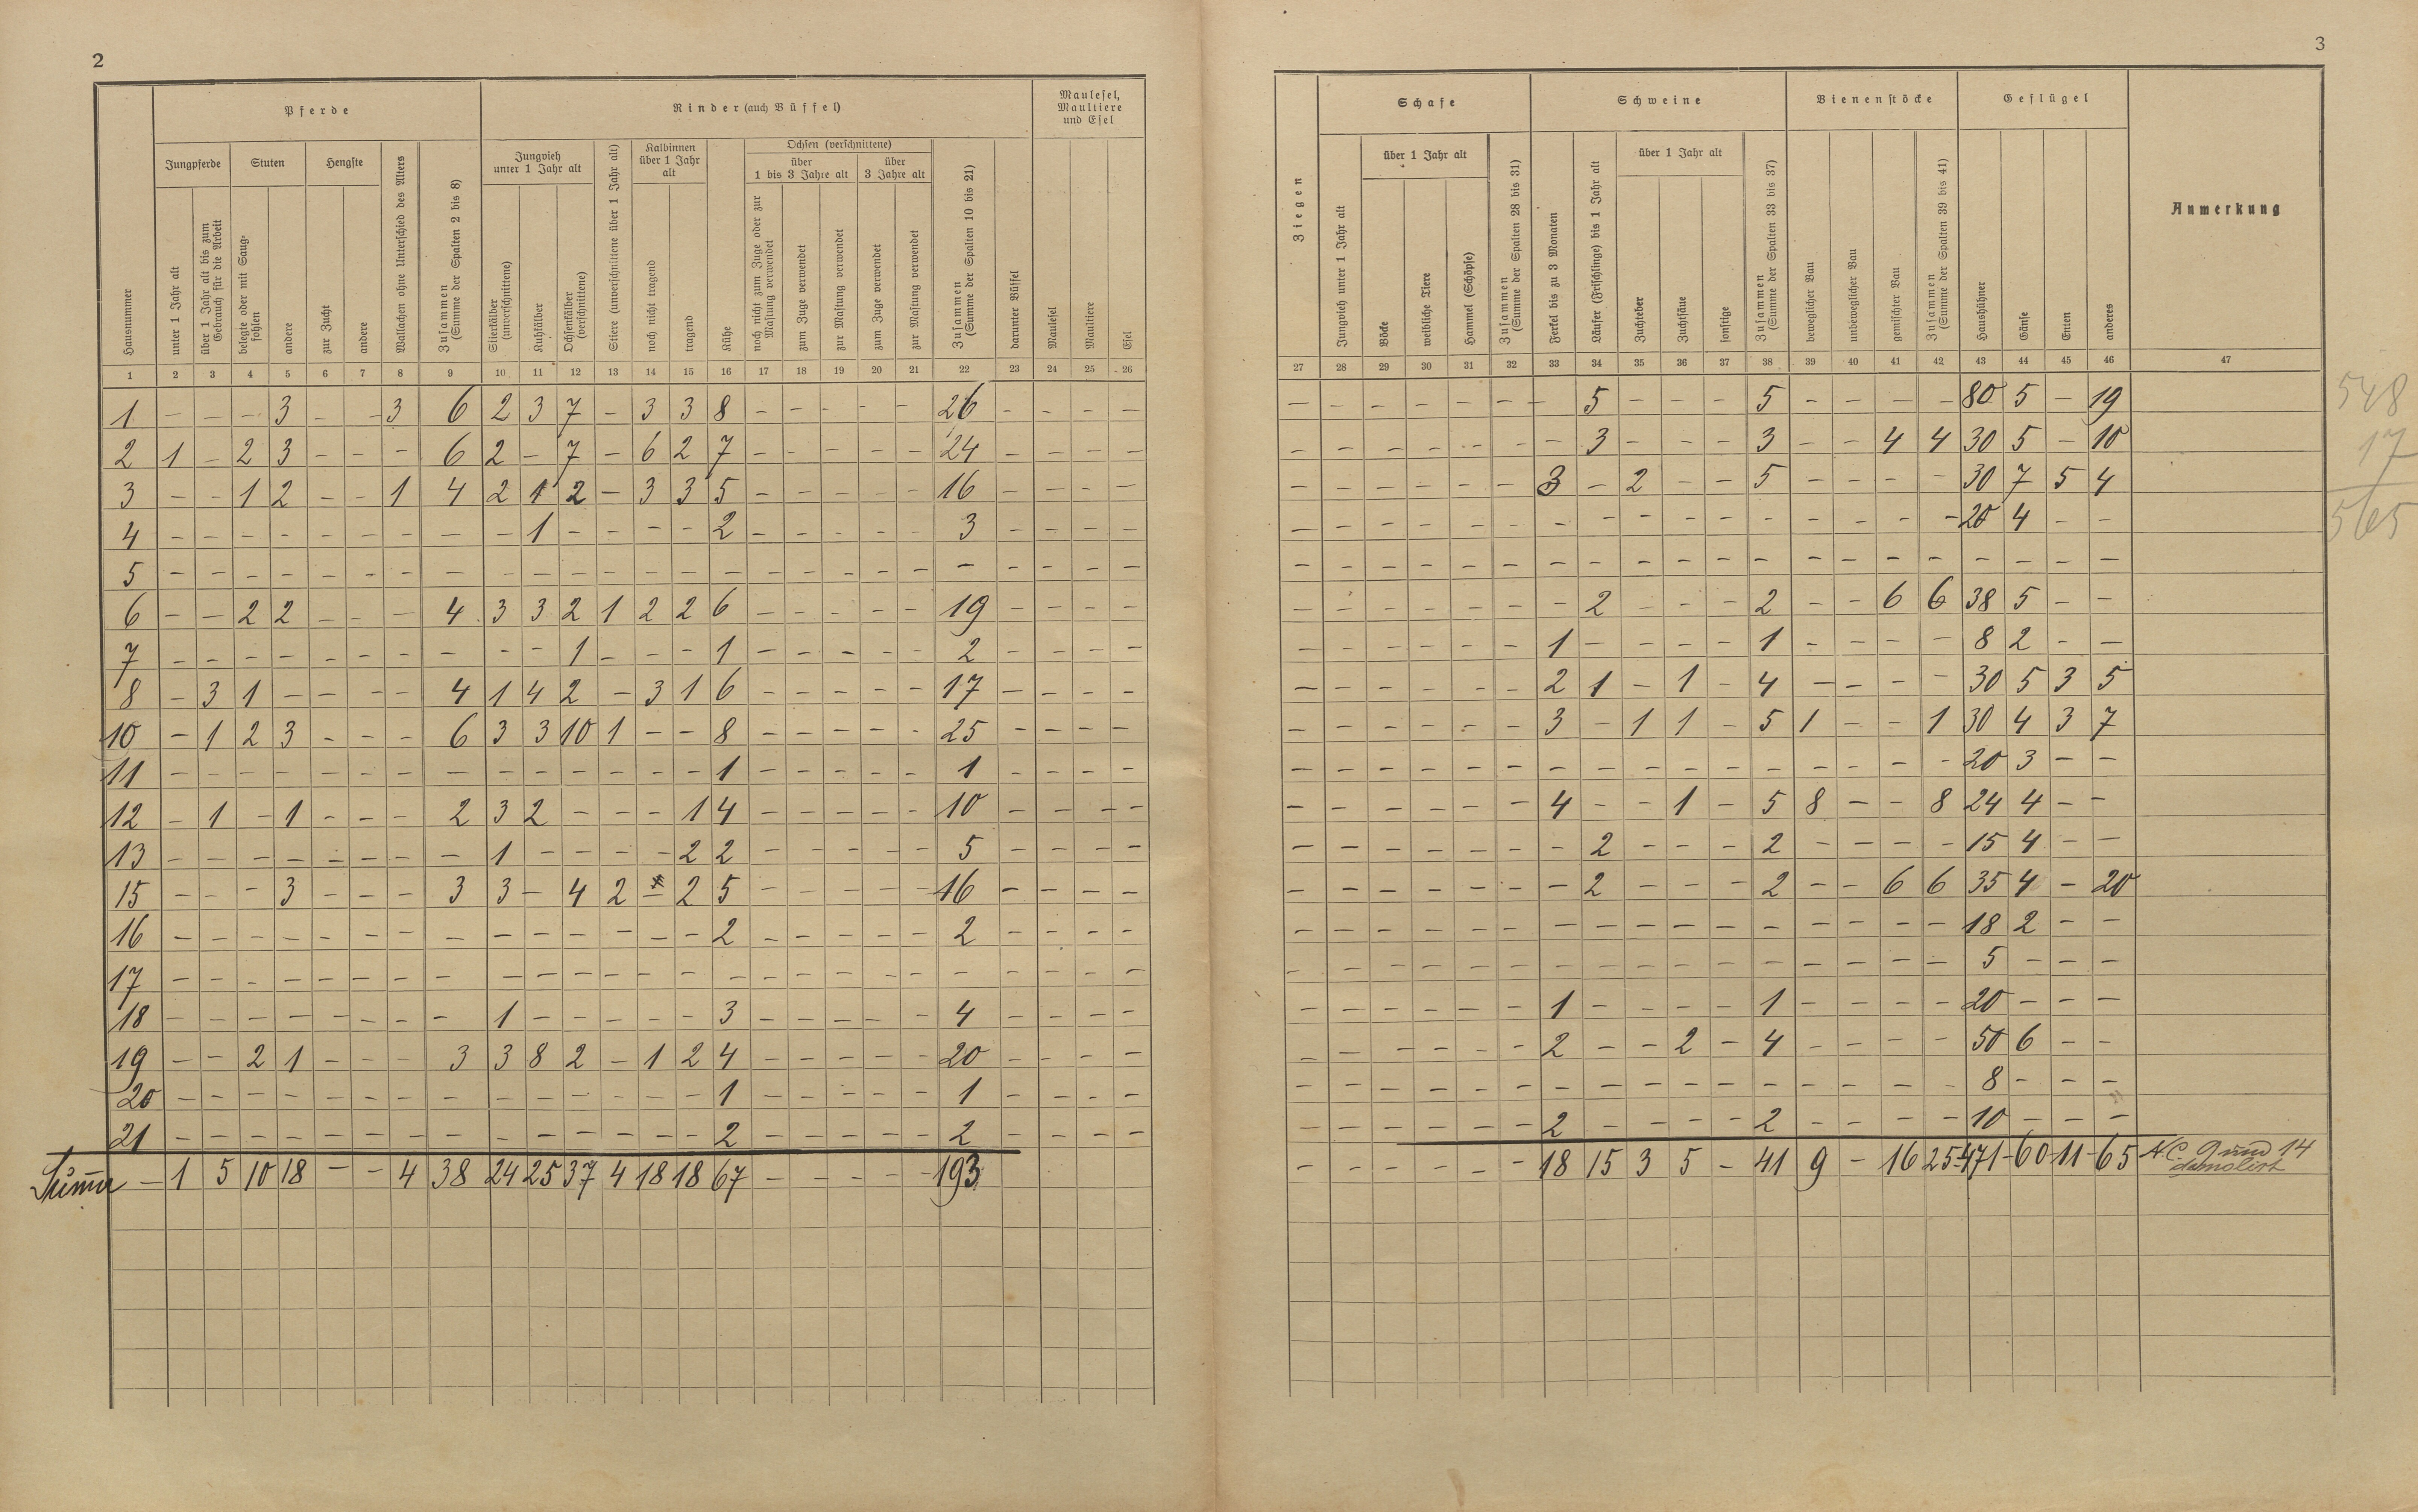 2
Pferde
Rinder (auch Büffel)
Maulesel, Maultiere und Esel
Jungpferde
Stuten
Hengste
Jungvieh unter 1 Jahr alt
Kalbinnen über 1 Jahr alt
Ochsen (verschnittene)
über 1 bis 3 Jahre alt
über 3 Jahre alt
Hausnummer
unter 1 Jahr alt
über 1 Jahr alt bis zum Gebrauch für die Arbeit
belegte oder mit Saugfohlen
andere
zur Zucht
andere
Wallachen ohne Unterschied des Alters
Zusammen (Summe der Spalten 2 bis 8)
Stierkälber (unverschnittene)
Kuhkälber
Ochsenkälber (verschnittene)
Stiere (unverschnittene über 1 Jahr alt)
noch nicht tragend
tragend
Kühe
noch nicht zum Zuge oder zur Mastung verwendet
zum Zuge verwendet
zur Mastung verwendet
zum Zuge verwendet
zur Mastung verwendet
Zusammen (Summe der Spalten 10 bis 21)
darunter Büffel
Maulesel
Maultiere
Esel
1 2 3 4 5 6 7 8 9 10 11 12 13 14 15 16 17 18 19 20 21 22 23 24 25 26
1 – – – 3 – – 3 6 2 3 7 – 3 3 8 – – – – – 26 – – – –
2 1 – 2 3 – – – 6 2 – 7 – 6 2 7 – – – – – 24 – – – –
3 – – 1 2 – – 1 4 2 1 2 – 3 3 5 – – – – – 16 – – – –
4 – – – – – – – – – 1 – – – – 2 – – – – – 3 – – – –
5 – – – – – – – – – – – – – – – – – – – – – – – – –
6 – – 2 2 – – – 4 3 3 2 1 2 2 6 – – – – – 19 – – – –
7 – – – – – – – – – – 1 – – – 1 – – – – – 2 – – – –
8 – 3 1 – – – – 4 1 4 2 – 3 1 6 – – – – – 17 – – – –
10 – 1 2 3 – – – 6 3 3 10 1 – – 8 – – – – – 25 – – – –
11 – – – – – – – – – – – – – – 1 – – – – – 1 – – – –
12 – 1 – 1 – – – 2 3 2 – – – 1 4 – – – – – 10 – – – –
13 – – – – – – – – 1 – – – – 2 2 – – – – – 5 – – – –
15 – – – 3 – – – 3 3 – 4 2 – 2 5 – – – – – 16 – – – –
16 – – – – – – – – – – – – – – 2 – – – – – 2 – – – –
17 – – – – – – – – – – – – – – – – – – – – – – – – –
18 – – – – – – – – 1 – – – – – 3 – – – – – 4 – – – –
19 – – 2 1 – – – 3 3 8 2 – 1 2 4 – – – – – 20 – – – –
20 – – – – – – – – – – – – – – 1 – – – – – 1 – – – –
21 – – – – – – – – – – – – – – 2 – – – – – 2 – – – –
– 1 5 10 18 – – 4 38 24 25 37 4 18 18 67 – – – – – 193
3
Schafe
Schweine
Bienenstöcke
Geflügel
Anmerkung
über 1 Jahr alt
über 1 Jahr alt
Ziegen
Jungvieh unter 1 Jahr alt
Böcke
weibliche Tiere
Hammel (Schöpse)
Zusammen (Summe der Spalten 28 bis 31)
Ferkel bis zu 3 Monaten
Läufer (Frischlinge) bis 1 Jahr alt
Zuchteber
Zuchtsäue
sonstige
Zusammen (Summe der Spalten 33 bis 37)
beweglicher Bau
unbeweglicher Bau
gemischter Bau
Zusammen (Summe der Spalten 39 bis 41)
Haushühner
Gänse
Enten
anderes
27 28 29 30 31 32 33 34 35 36 37 38 39 40 41 42 43 44 45 46 47
– – – – – – – 5 – – – 5 – – – – 80 5 – 19
– – – – – – – 3 – – – 3 – – 4 4 30 5 – 10
– – – – – – 3 – 2 – – 5 – – – – 30 7 5 4
– – – – – – – – – – – – – – – – 20 4 – –
– – – – – – – – – – – – – – – – – – – –
– – – – – – – 2 – – – 2 – – 6 6 38 5 – –
– – – – – – 1 – – – – 1 – – – – 8 2 – –
– – – – – – 2 1 – 1 – 4 – – – – 30 5 3 5
– – – – – – 3 – 1 1 – 5 1 – – 1 30 4 3 7
– – – – – – – – – – – – – – – – 20 3 – –
– – – – – – 4 – – 1 – 5 8 – – 8 24 4 – –
– – – – – – – 2 – – – 2 – – – – 15 4 – –
– – – – – – – 2 – – – 2 – – 6 6 35 4 – 20
– – – – – – – – – – – – – – – – 18 2 – –
– – – – – – – – – – – – – – – – 5 – – –
– – – – – – 1 – – – – 1 – – – – 20 – – –
– – – – – – 2 – – 2 – 4 – – – – 50 6 – –
– – – – – – – – – – – – – – – – 8 – – –
– – – – – – 2 – – – – 2 – – – – 10 – – –
– – – – – – 18 15 3 5 – 41 9 – 16 25 471 – 60 – 11 – 65 N.C. 9 und 14
demolirt
548
17
565